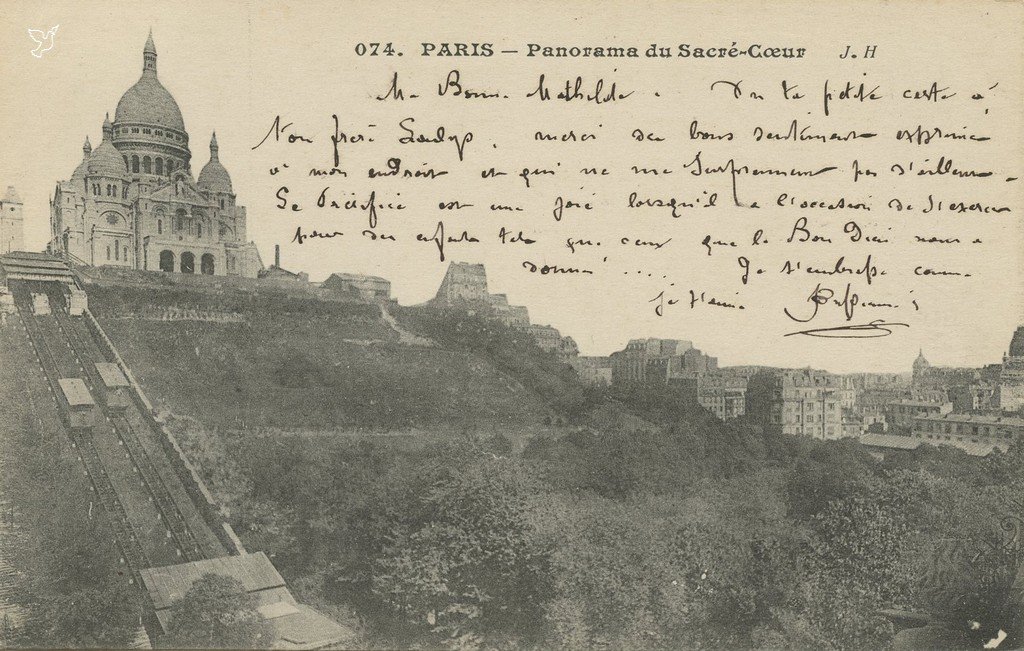 074. PARIS – Panorama du Sacré-Cœur J. H
Ma Bonne Mathilde. ta petite carte à
Ton frère merci des bons sentiments exprimés
à mon endroit et qui ne me surprennent pas d'ailleurs.
Le Sacrifice est une joie lorsqu'il a l'occasion de s'exercer
pour des enfants tels que ceux que le Bon Dieu nous a
donné .... Je t'embrasse comme
je t'aime